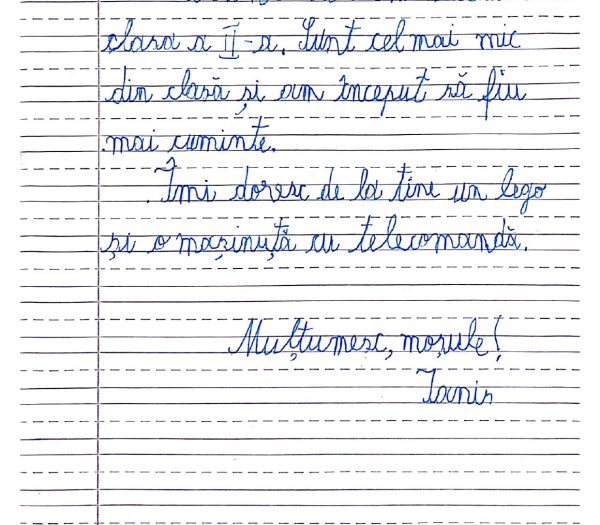 clasa a II-a. Sunt cel mai mic
din clasă și am început să fiu
mai cuminte.
Îmi doresc de la tine un lego
și o mașinuță cu telecomandă.
Mulțumesc, moșule!
Ianis